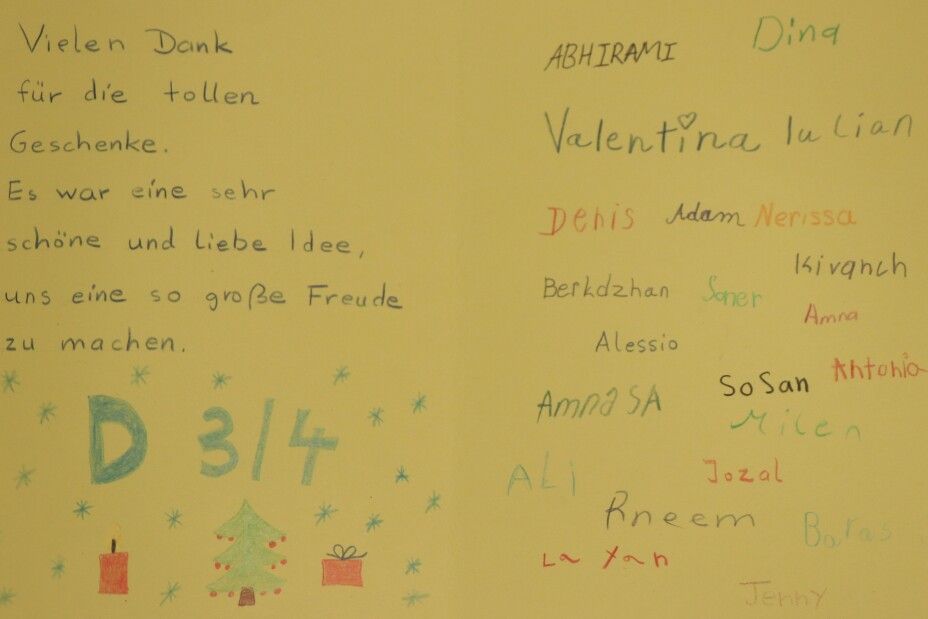 Vielen Dank
für die tollen
Geschenke.
Es war eine sehr
schöne und liebe Idee,
uns eine so große Freude
zu machen.
D 3/4
ABHIRAMI Dina
Valentina Iulian
Denis Adam Nerissa
Kivanch
Berkdzhan Soner
Amna
Alessio
Antonia
SoSan
Amna SA
Milen
ALi Jozal
Rneem
Baraa
La Yan
Jenny